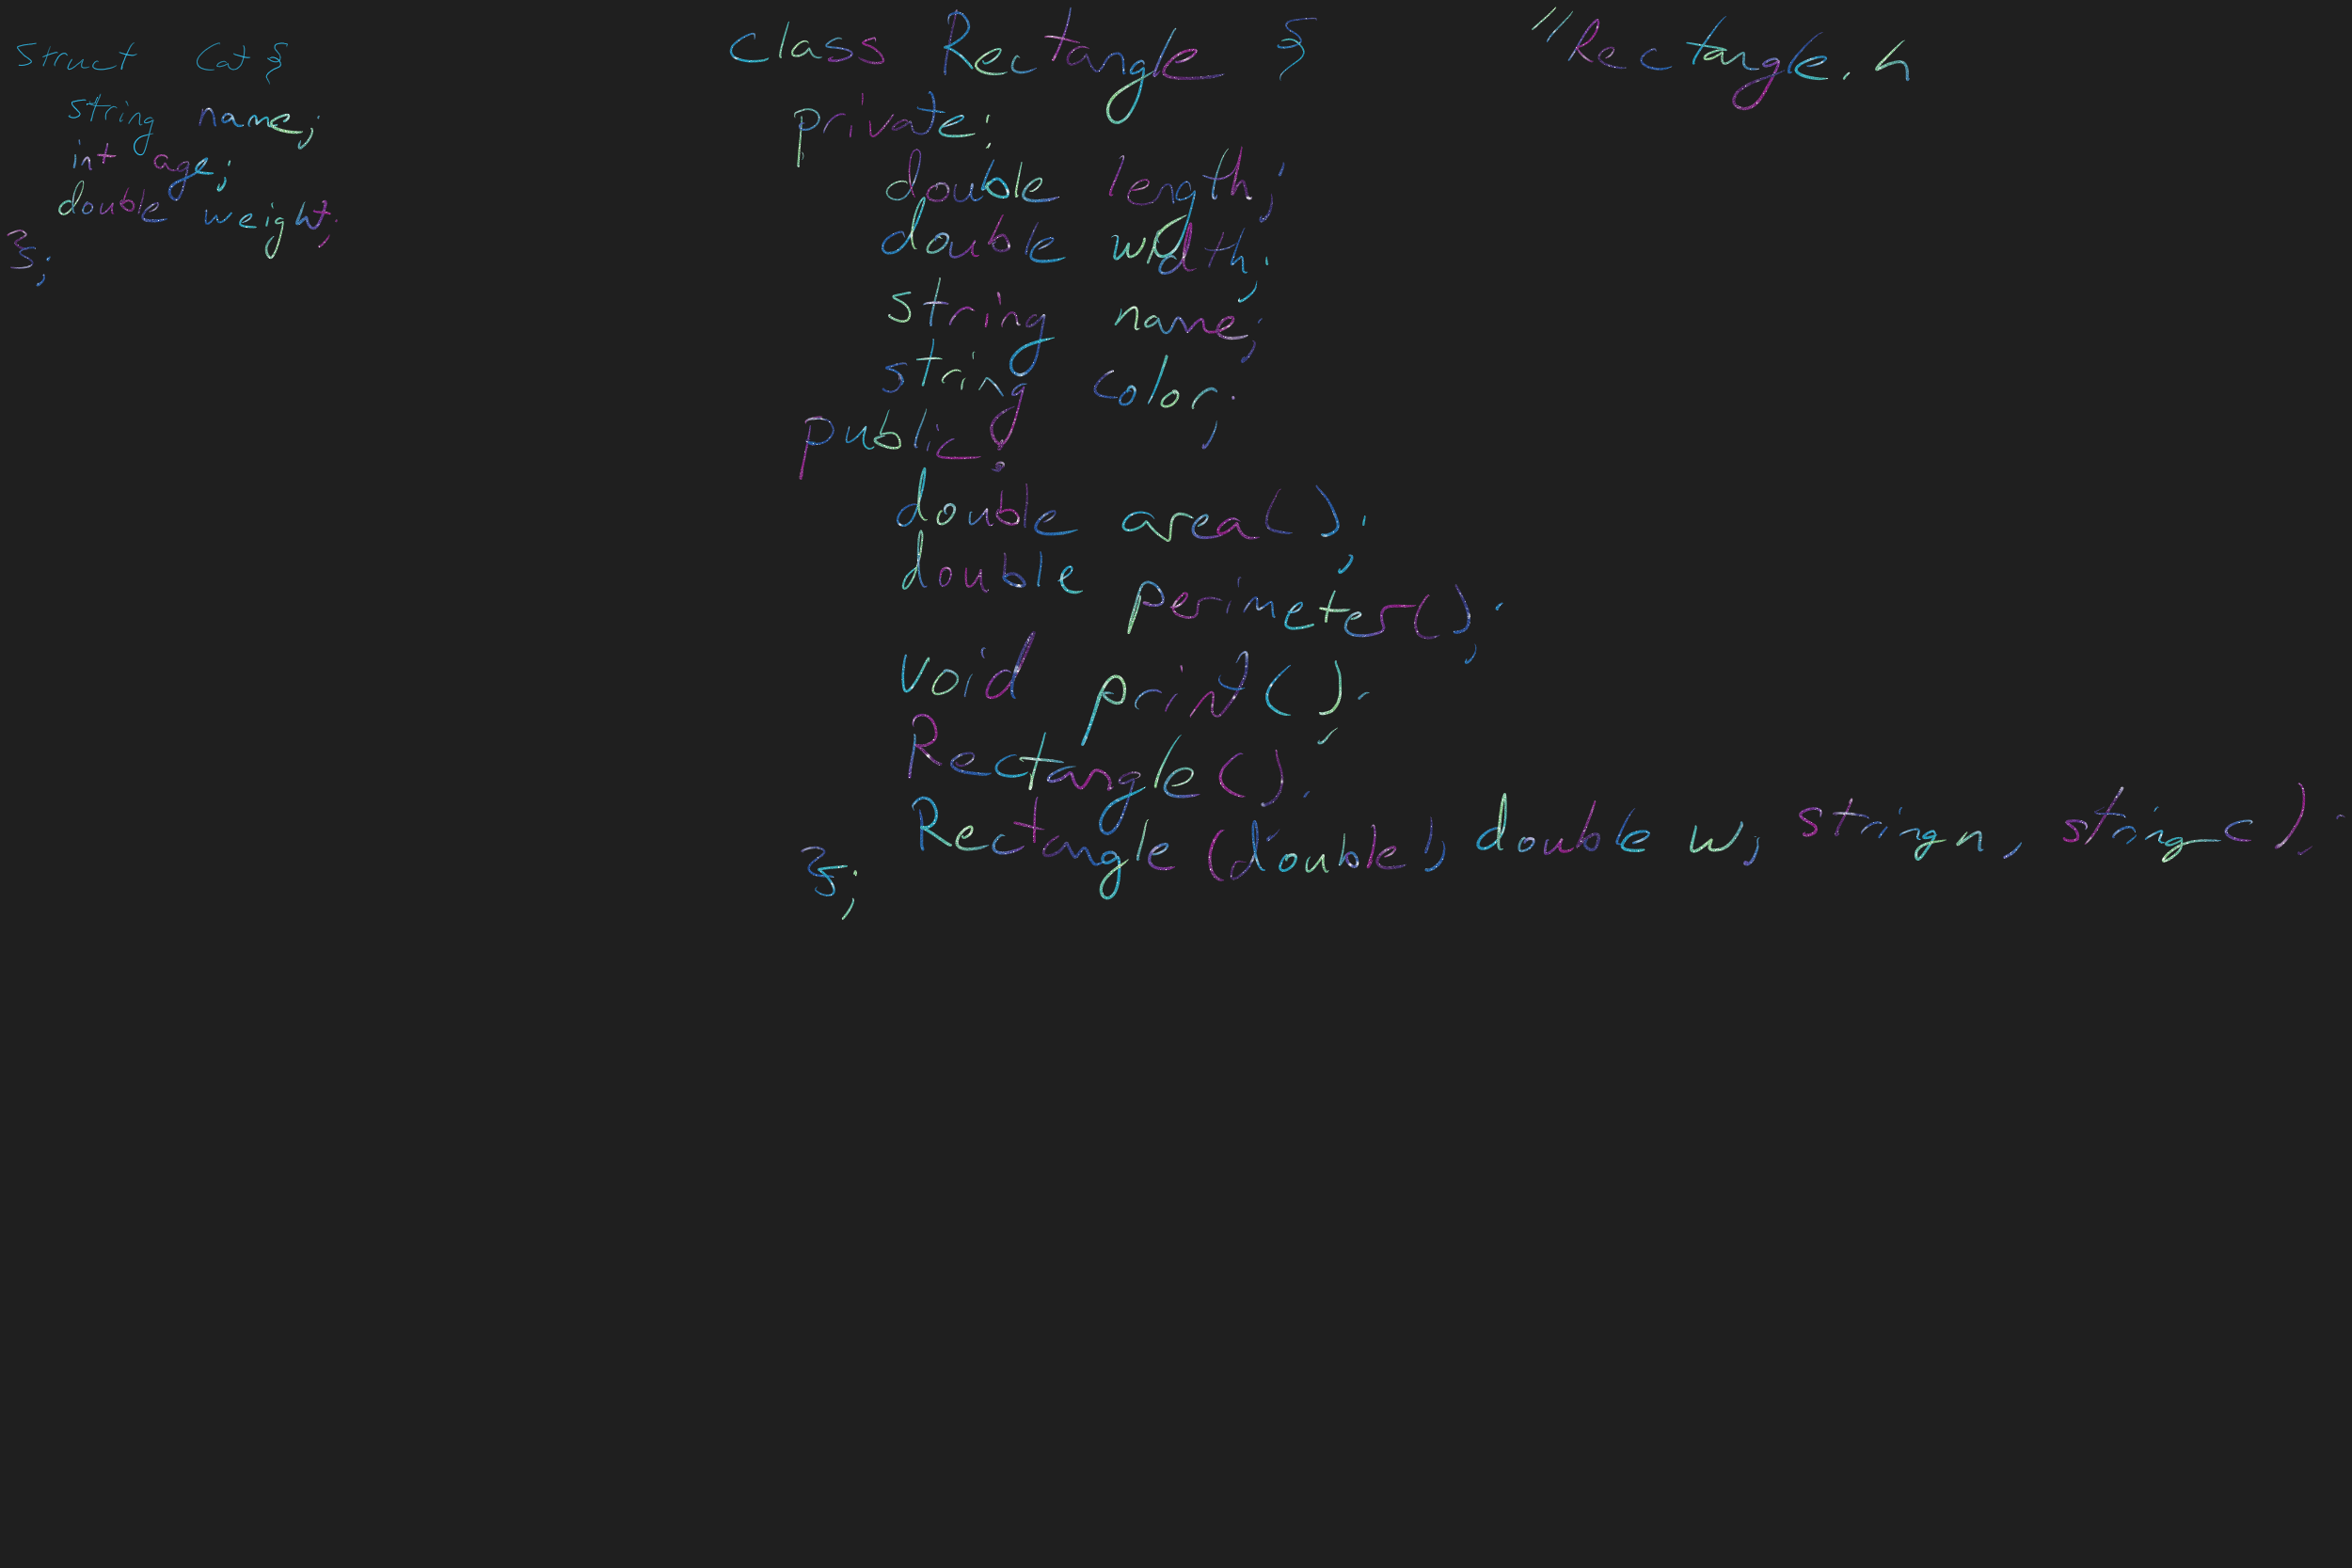 struct Cat {
string name;
int age;
double weight;
};
class Rectangle { //Rectangle.h
private:
double length;
double width;
string name;
string color;
public:
double area();
double perimeter();
void print();
Rectangle();
Rectangle(double l, double w, string n, string c);
};